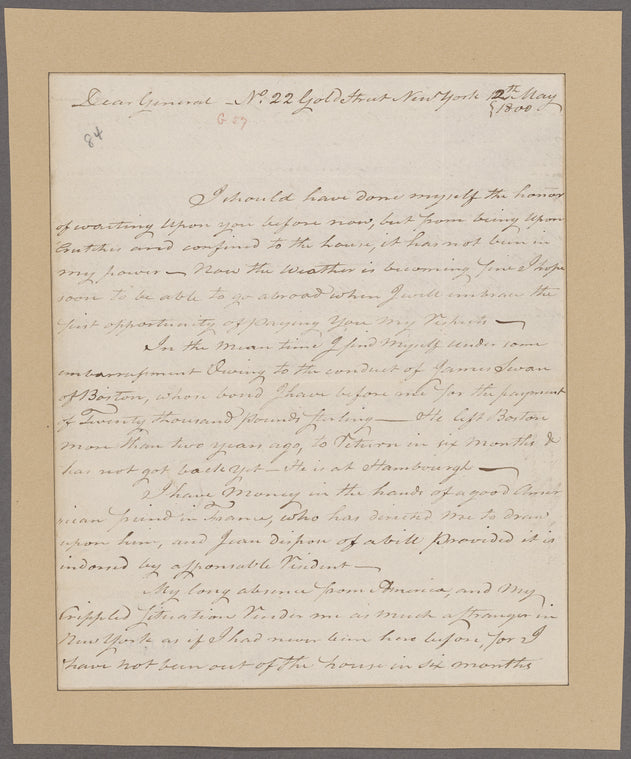 Dear General - No. 22 Gold Street New York 2th May
1800
G 59
84
I should have done myself the honor
of waiting Upon you before now, but from being Upon
Crutches and confined to the house, it has not been in
my power — Now the Weather is becoming fine I hope
soon to be able to go abroad when I will embrace the
first opportunity of paying You My Respects —
In the mean time I find Myself under some
embarrassment Owing to the conduct of James Swan
of Boston, whose bond I have before me for the payment
of Twenty thousand pounds sterling — He left Boston
more than two years ago, to Return in six months &
has not got back yet — He is at Hambourgh —
I have Money in the hands of a good Amer
rican friend in France, who has directed me to draw
upon him, and I can dispose of a bill provided it is
indorsed by a responsable Resident —
My long absence from America, and My
Crippled Situation Render me as much a stranger in
New York as if I had never been here before, for I
have not been out of the house in six months